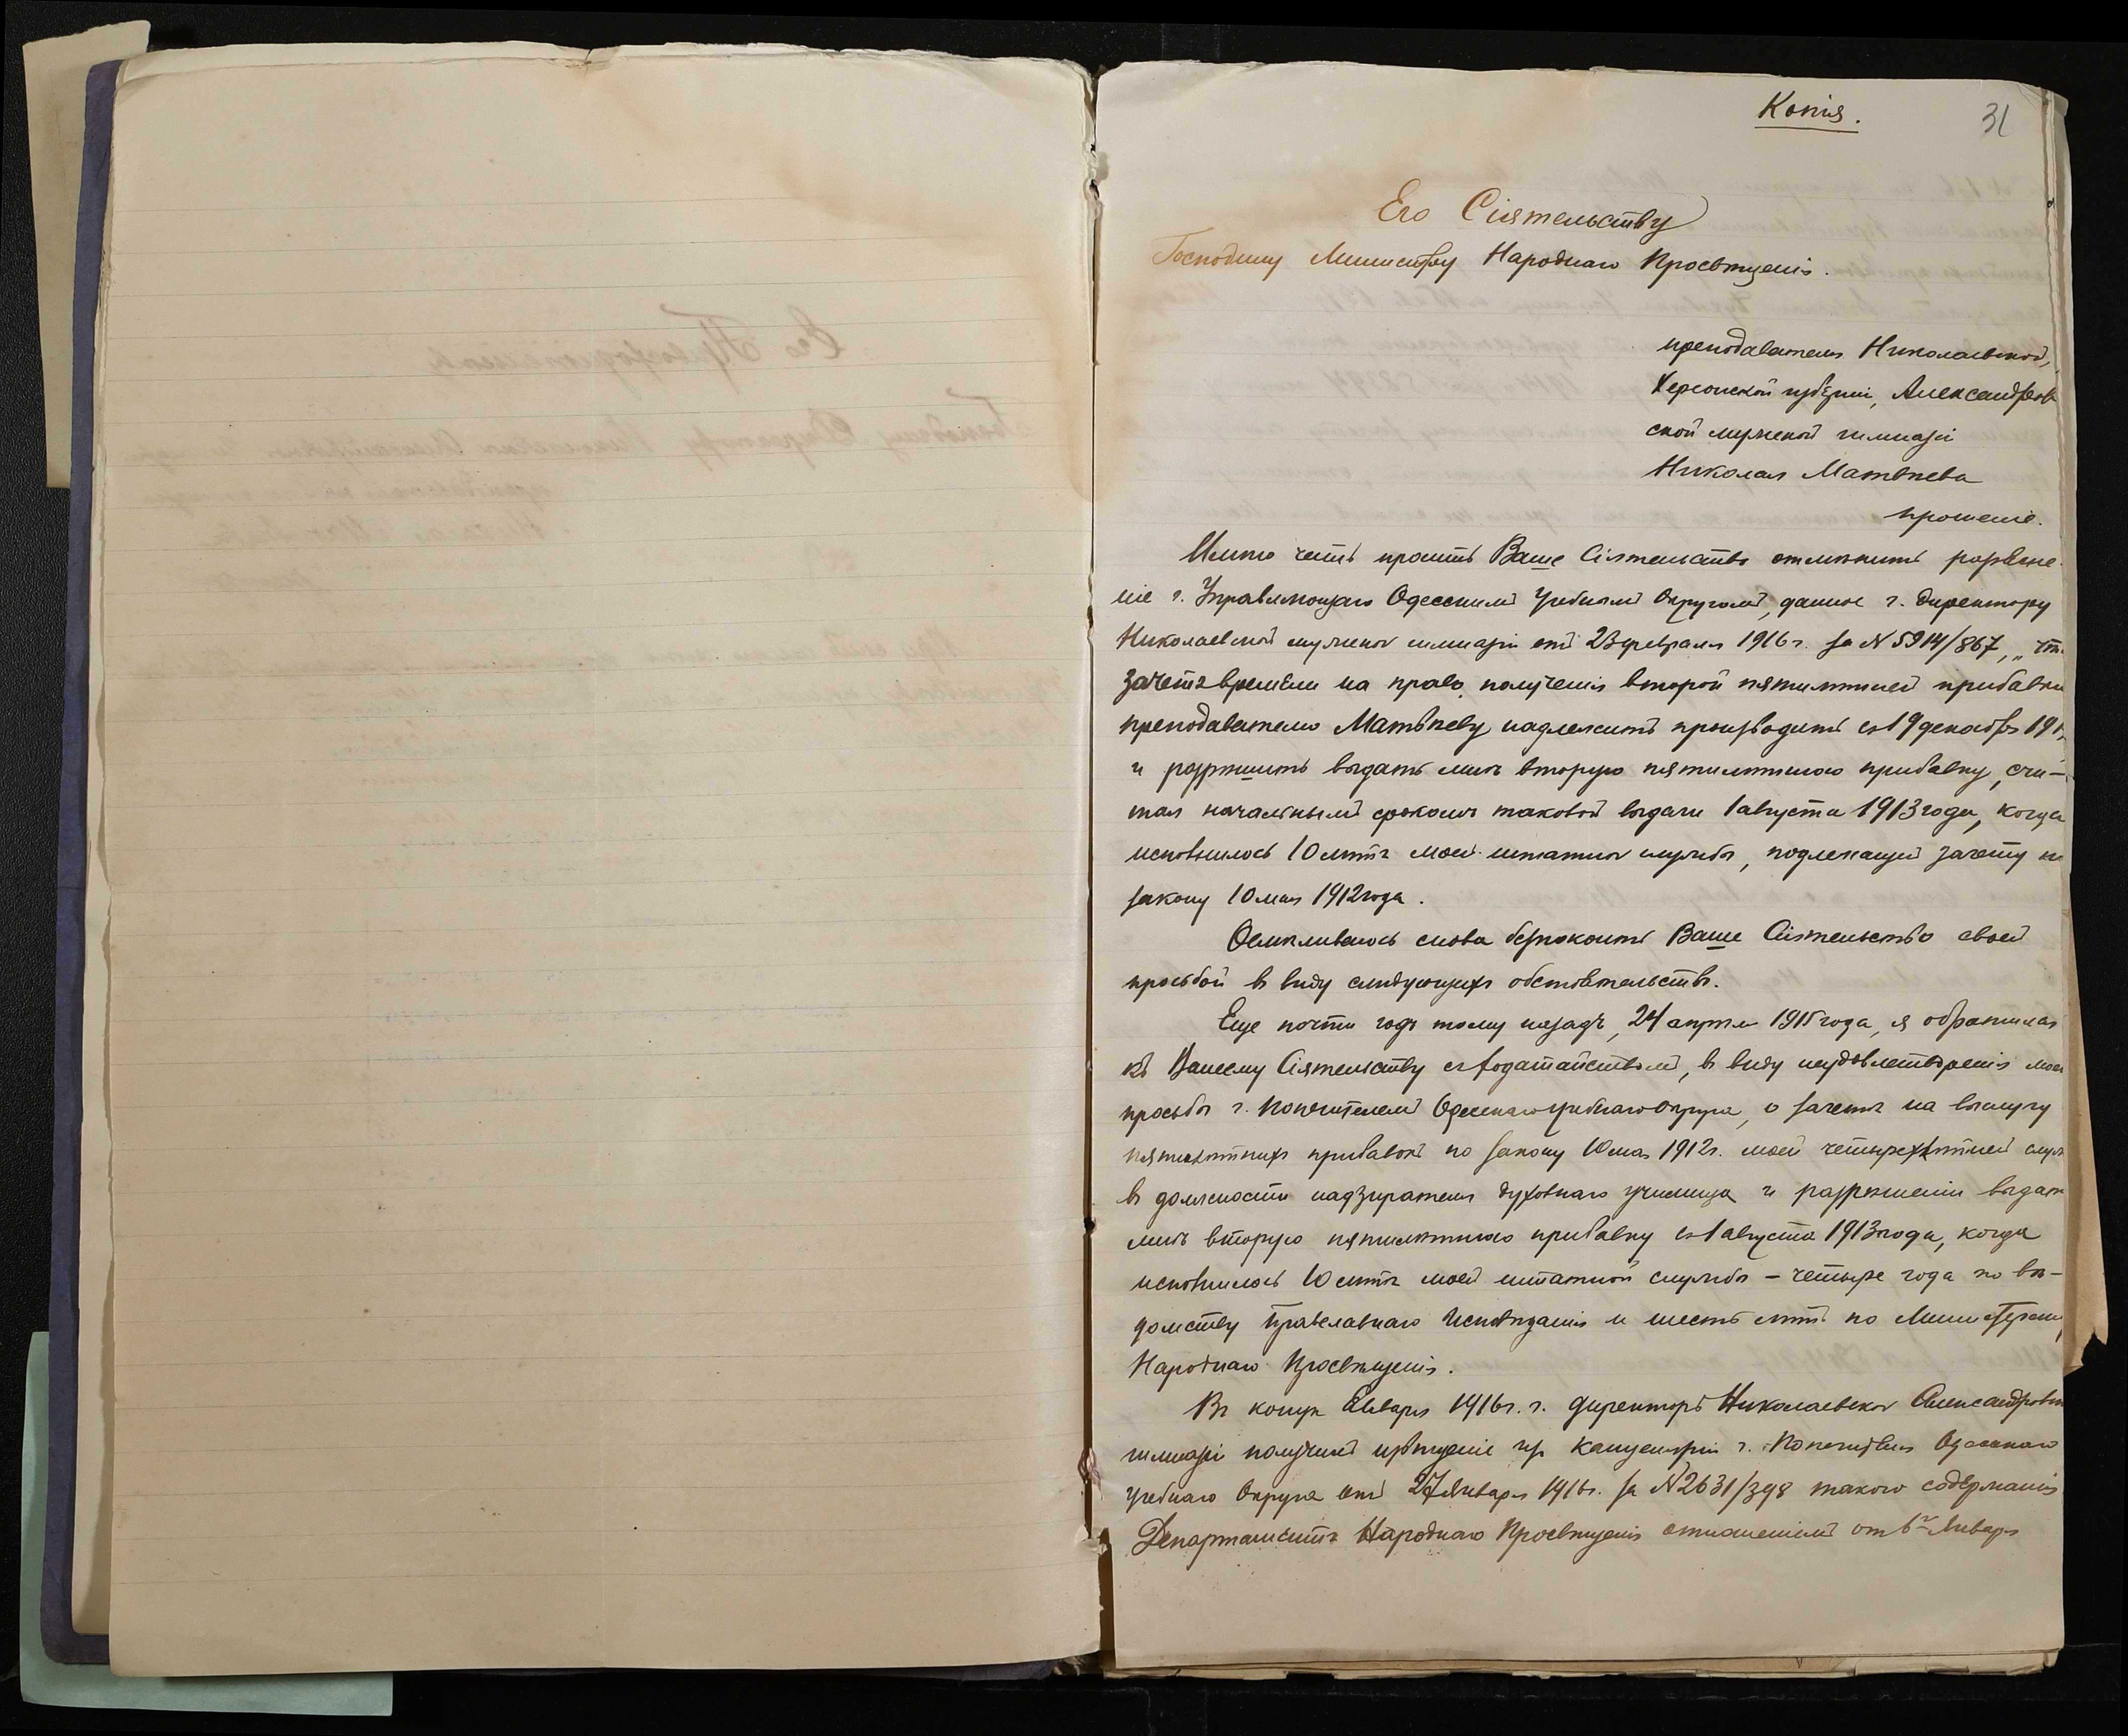 Копія.
31
Его Сіятельству
Господину Министру Народнаго Просвѣщенія.
преподавателя Николаевской,
Херсонской губерніи, Александров
ской мужской гимназіи
Николая Матвѣева
прошеніе.
Имѣю честь просить Ваше Сіятельство отмѣнить разъясне
ніе г. Управляющаго Одесскимъ Учебнымъ Округомъ, данное г. Директору
Николаевской мужской гимназіи отъ 23 февраля 1916 г. за № 5914/867, „что
зачетъ времени на право полученія второй пятилѣтней прибавки
преподавателю Матвѣеву надлежитъ производить съ 19 декабря 191
и разрѣшить выдать мнѣ вторую пятилѣтнюю прибавку, счи-
тая начальнымъ срокомъ таковой выдачи 1 августа 1913 года, когда
исполнилось 10 лѣтъ моей штатной службы, подлежащей зачету по
закону 10 мая 1912 года.
Осмѣливаюсь снова безпокоить Ваше Сіятельство своей
просьбой въ виду слѣдующихъ обстоятельствъ.
Еще почти годъ тому назадъ, 24 апрѣля 1915 года, я обратился
къ Вашему Сіятельству съ ходатайствомъ, въ виду неудовлетворенія моей
просьбы г. Попечителемъ Одесскаго Учебнаго Округа, о зачетѣ на выслугу
пятилѣтнихъ прибавокъ по закону 10 мая 1912 г. моей четырехлѣтней служ
въ должности надзирателя духовнаго училища и разрѣшеніи выдать
мнѣ вторую пятилѣтнюю прибавку съ 1 августа 1913 года, когда
исполнилось 10 лѣтъ моей штатной службы - четыре года по вѣ-
домству Православнаго Исповѣданія и шесть лѣтъ по Министерству
Народнаго Просвѣщенія.
Въ концѣ Января 1916 г. г. Директоръ Николаевской Александровской
гимназіи получилъ извѣщеніе изъ Канцеляріи г. Попечителя Одесскаго
Учебнаго Округа отъ 27 Января 1916 г. за № 2631/398 такого содержанія
Департаментъ Народнаго Просвѣщенія отношеніемъ отъ Января